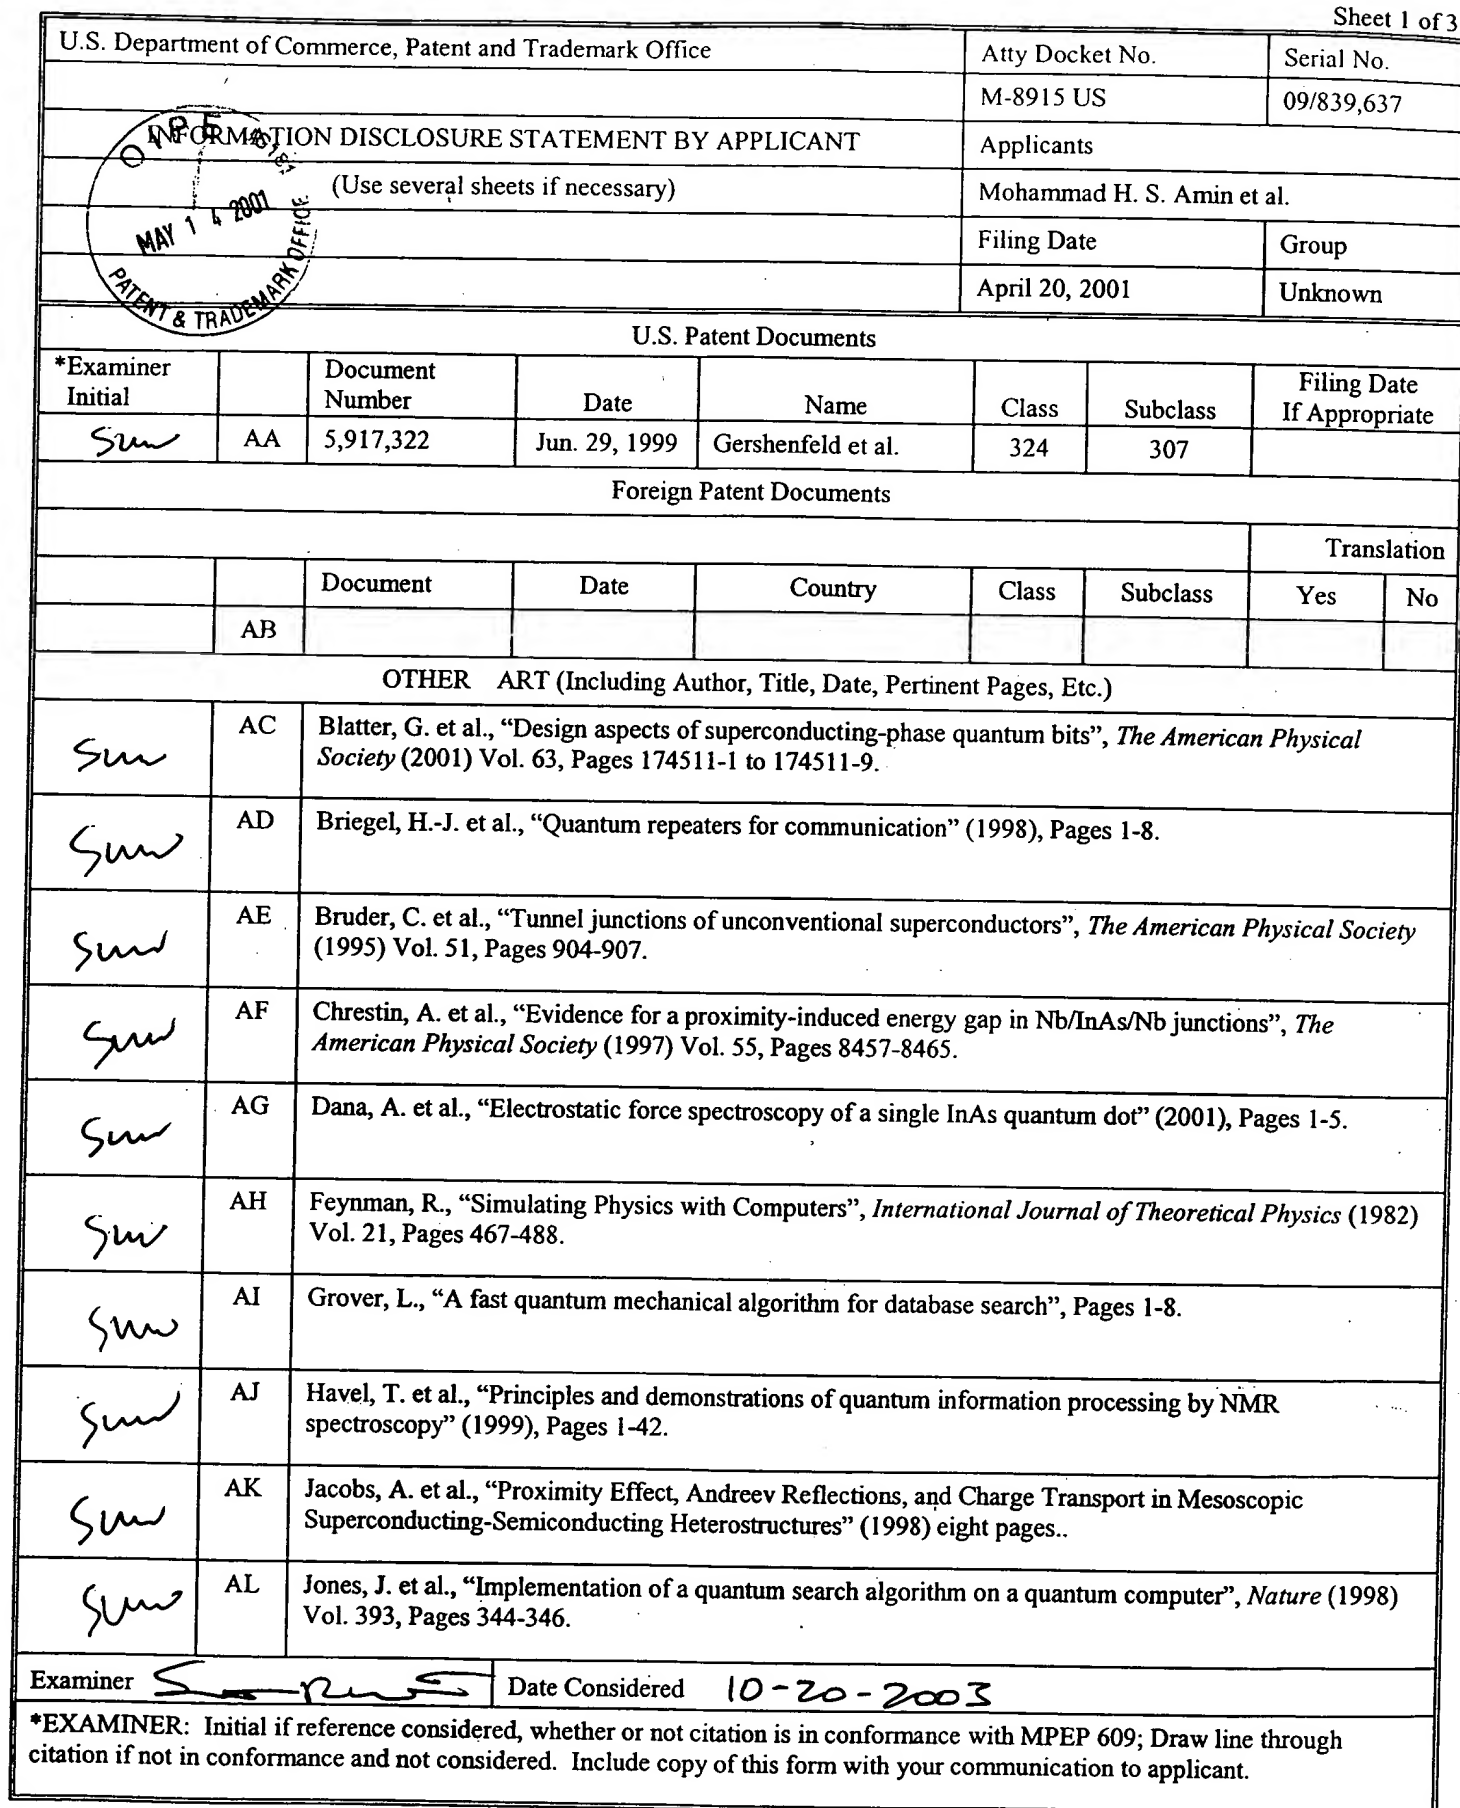 Sheet 1 of 3
U.S. Department of Commerce, Patent and Trademark Office
Atty Docket No.
Serial No.
M-8915 US
09/839,637
INFORMATION DISCLOSURE STATEMENT BY APPLICANT
Applicants
(Use several sheets if necessary)
Mohammad H. S. Amin et al.
Filing Date
Group
April 20, 2001
Unknown
OIPE
MAY 14 2001
PATENT & TRADEMARK OFFICE
U.S. Patent Documents
*Examiner
Initial
Document
Number
Date
Name
Class
Subclass
Filing Date
If Appropriate
AA
5,917,322
Jun. 29, 1999
Gershenfeld et al.
324
307
Foreign Patent Documents
Translation
Document
Date
Country
Class
Subclass
Yes
No
AB
OTHER ART (Including Author, Title, Date, Pertinent Pages, Etc.)
AC
Blatter, G. et al., “Design aspects of superconducting-phase quantum bits”, The American Physical
Society (2001) Vol. 63, Pages 174511-1 to 174511-9.
AD
Briegel, H.-J. et al., “Quantum repeaters for communication” (1998), Pages 1-8.
AE
Bruder, C. et al., “Tunnel junctions of unconventional superconductors”, The American Physical Society
(1995) Vol. 51, Pages 904-907.
AF
Chrestin, A. et al., “Evidence for a proximity-induced energy gap in Nb/InAs/Nb junctions”, The
American Physical Society (1997) Vol. 55, Pages 8457-8465.
AG
Dana, A. et al., “Electrostatic force spectroscopy of a single InAs quantum dot” (2001), Pages 1-5.
AH
Feynman, R., “Simulating Physics with Computers”, International Journal of Theoretical Physics (1982)
Vol. 21, Pages 467-488.
AI
Grover, L., “A fast quantum mechanical algorithm for database search”, Pages 1-8.
AJ
Havel, T. et al., “Principles and demonstrations of quantum information processing by NMR
spectroscopy” (1999), Pages 1-42.
AK
Jacobs, A. et al., “Proximity Effect, Andreev Reflections, and Charge Transport in Mesoscopic
Superconducting-Semiconducting Heterostructures” (1998) eight pages..
AL
Jones, J. et al., “Implementation of a quantum search algorithm on a quantum computer”, Nature (1998)
Vol. 393, Pages 344-346.
Examiner
Date Considered 10-20-2003
*EXAMINER: Initial if reference considered, whether or not citation is in conformance with MPEP 609; Draw line through
citation if not in conformance and not considered. Include copy of this form with your communication to applicant.